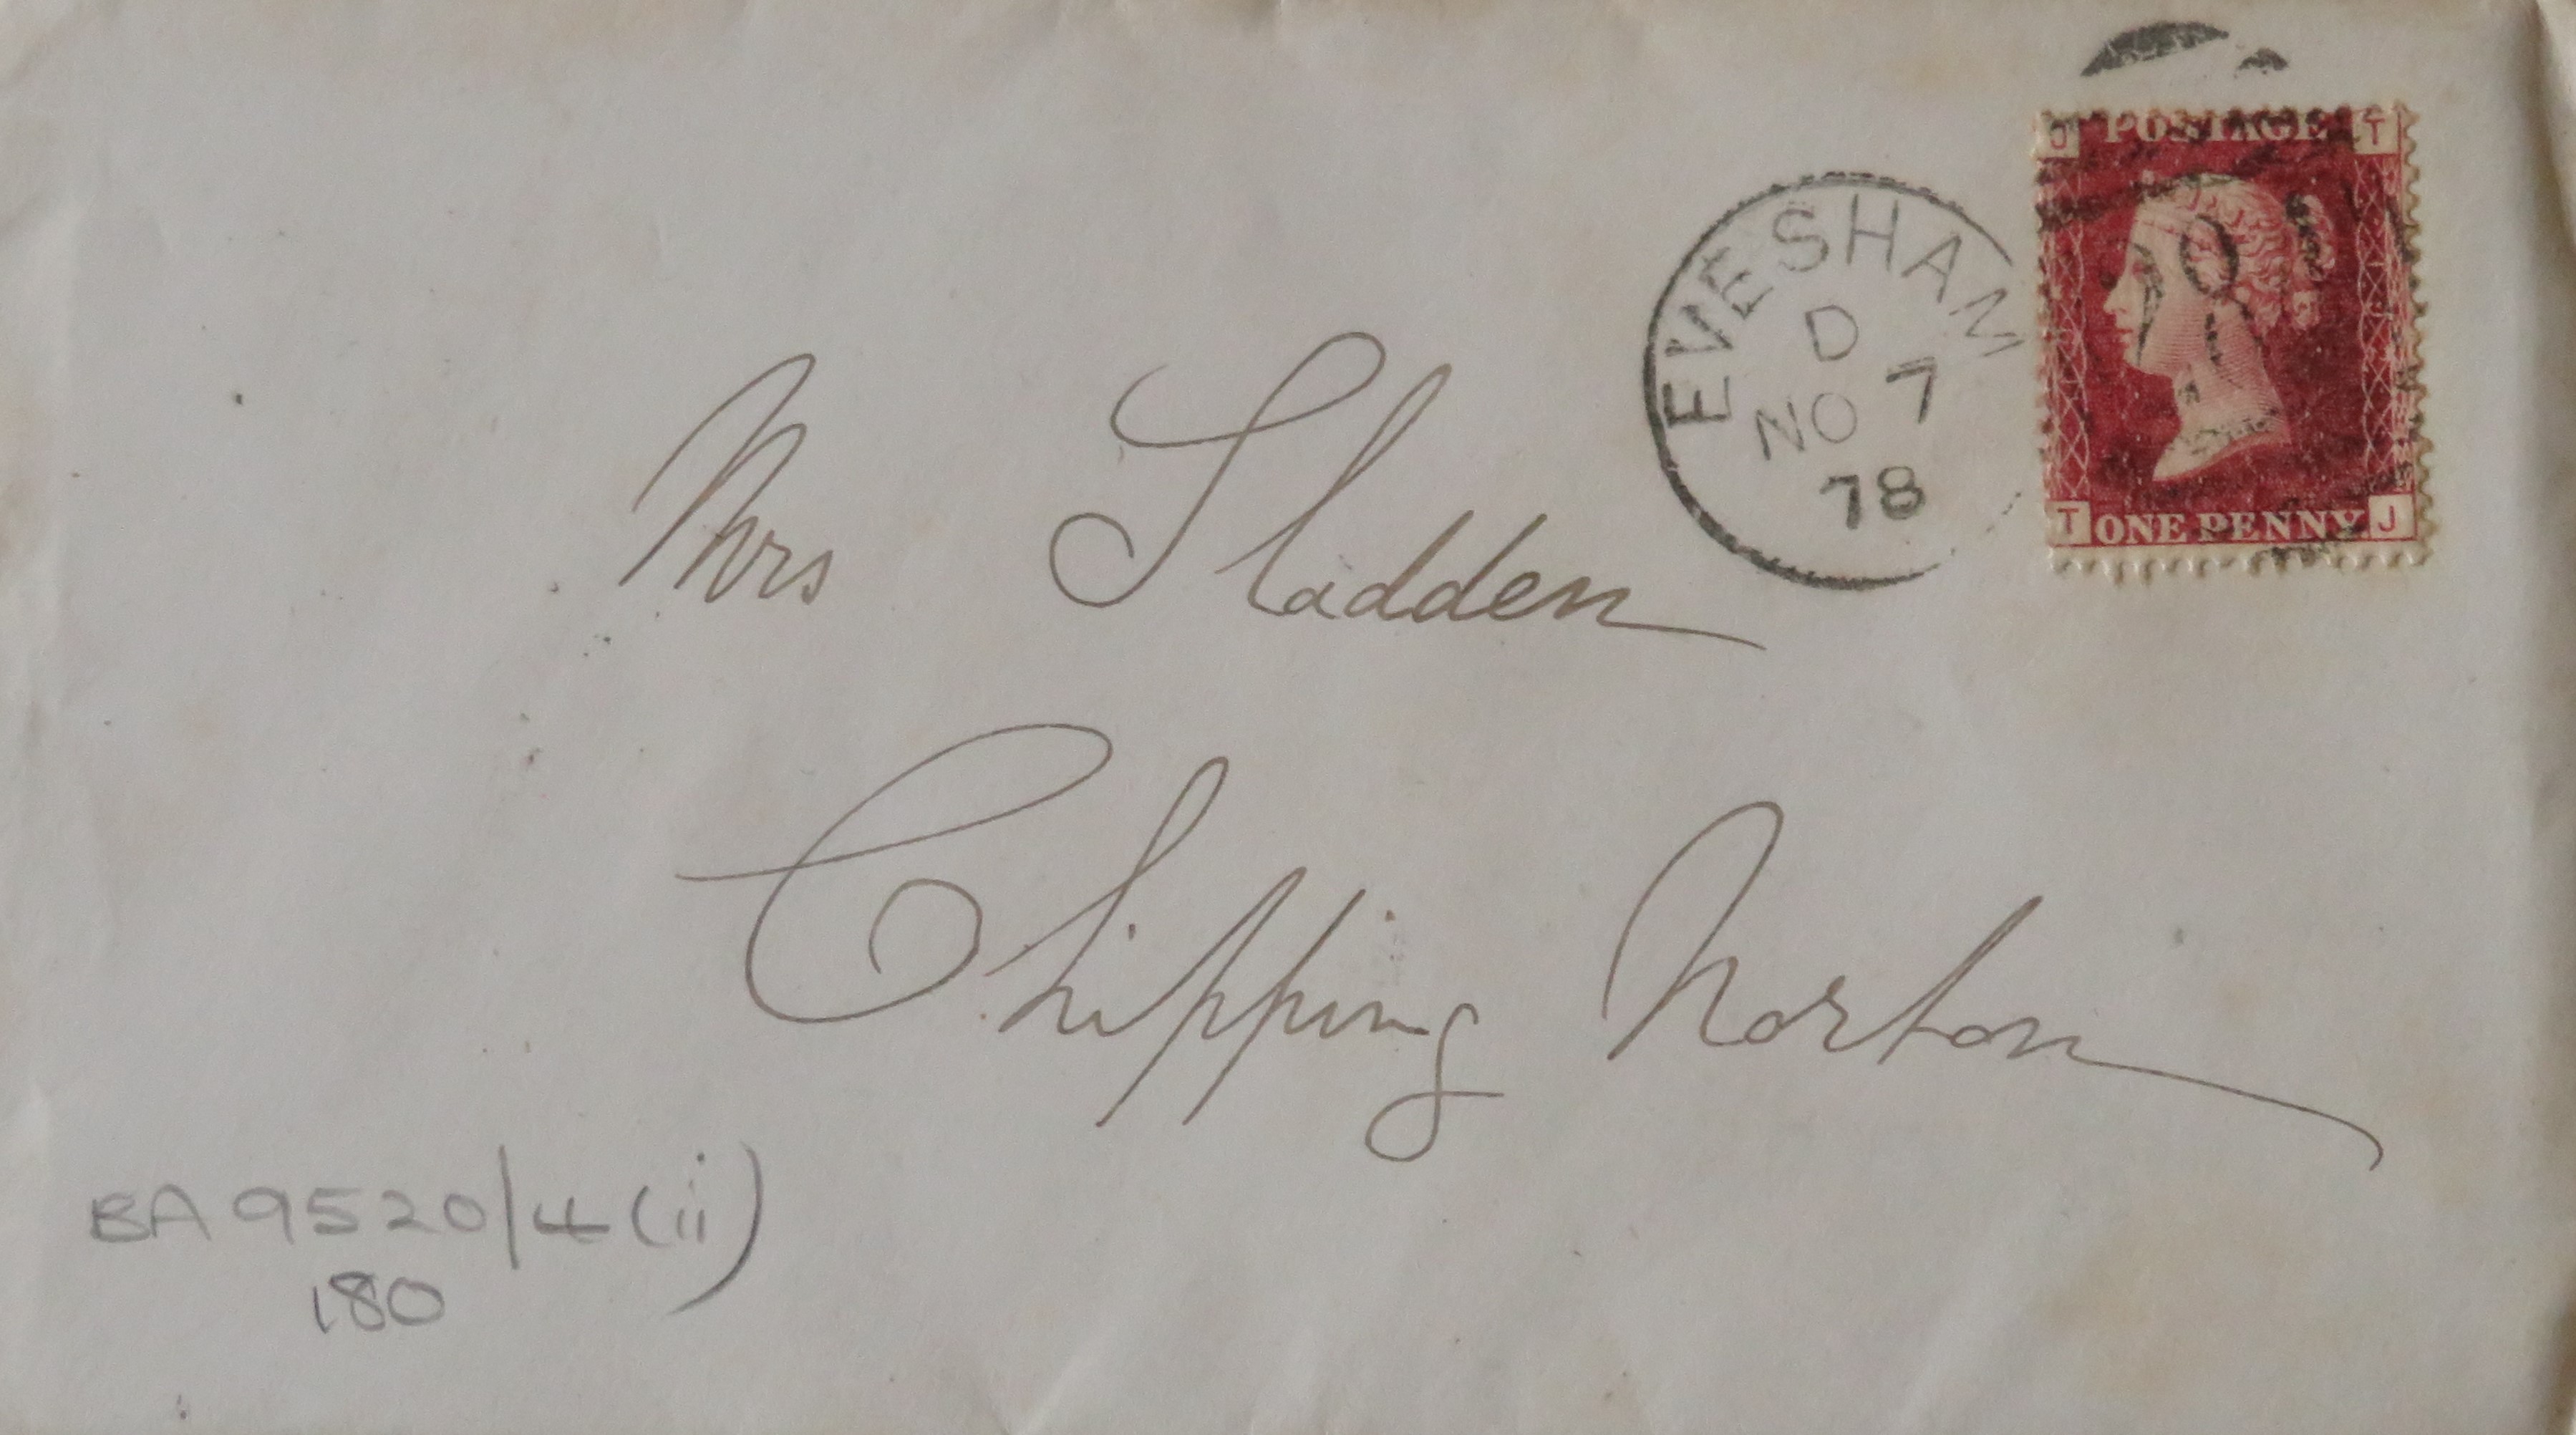 J POSTAGE T
EVESHAM
D
NO 7
78
T ONE PENNY J
Mrs Sladden
Chipping Norton
BA 9520/4(ii)
180